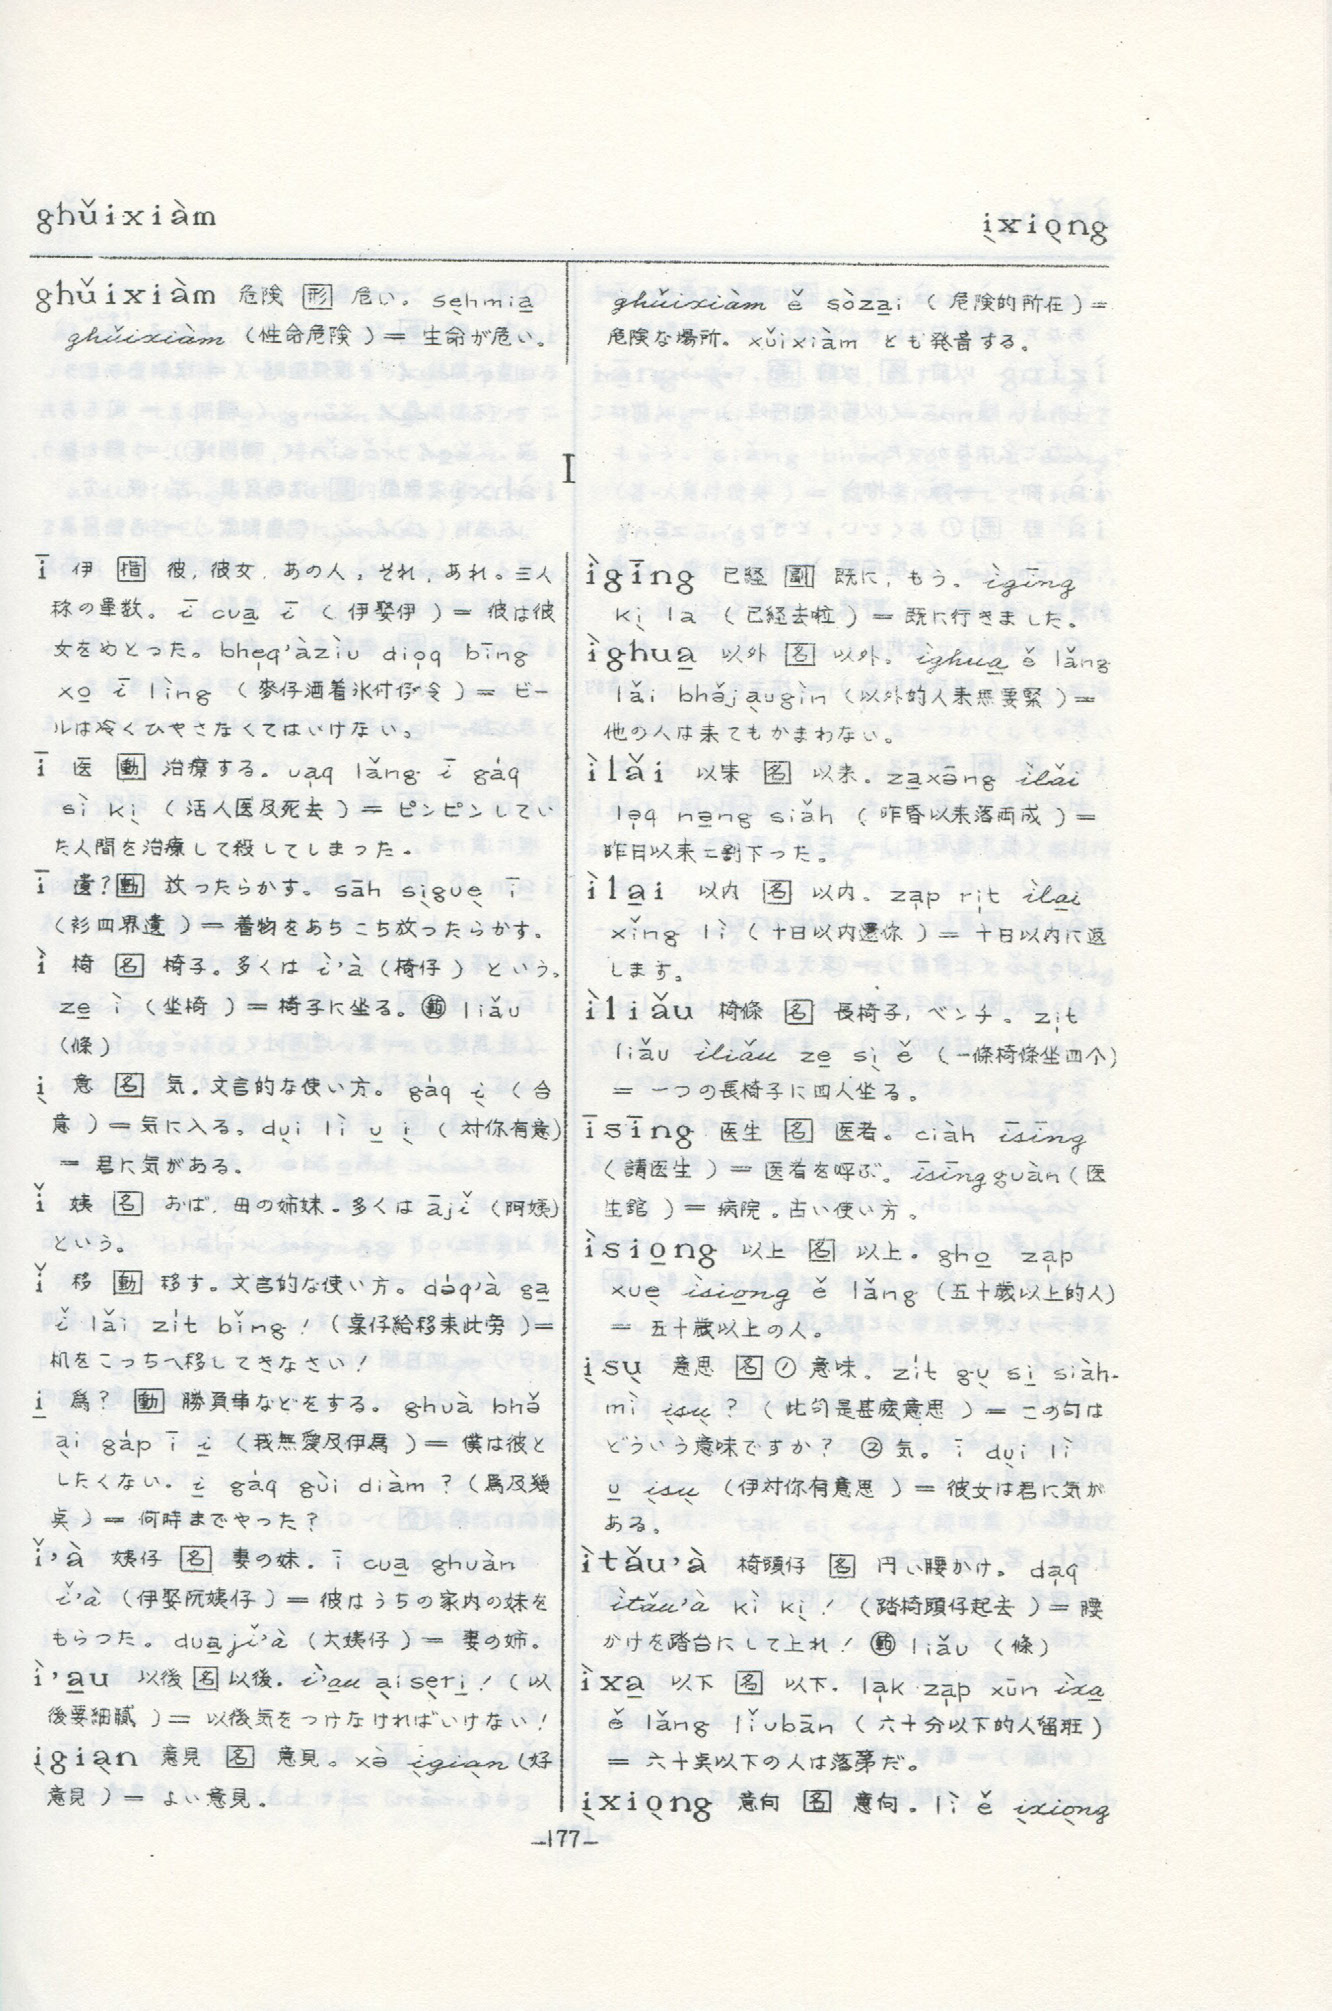 ghǔixiàm
ì̠xiọng
ghǔixiàm 危険 形 危い。sẹhmia̠
ghǔixiàm (性命危険) = 生命が危い。
ghǔixiàm ě sòza̠i (危険的所在) =
危険な場所。xǔixiàm とも発音する。
I
ī 伊 指 彼, 彼女, あの人, それ, あれ。三人
称の単数。ī cua̠ ī (伊娶伊) = 彼は彼
女をめとった。bhẹq'àziù diọq bīng
xo̠ ī lìng (麥仔酒着氷付伊令) = ビー
ルは冷くひやさなくてはいけない。
ī 医 動 治療する。ua̠q lǎng ī ga̍q
sì kị (活人医及死去) = ピンピンしてい
た人間を治療して殺してしまった。
ī 遺? 動 放ったらかす。sāh sịgue̠ ī
(衫四界遺) = 着物をあちこち放ったらかす。
ì 椅 名 椅子。多くは ì'à (椅仔) という。
ze̠ ì (坐椅) = 椅子に坐る。助 liǎu
(條)
ị 意 名 気。文言的な使い方。ga̍q ị (合
意) = 気に入る。dụi lì u̠ ị (対你有意)
= 君に気がある。
ǐ 姨 名 おば, 母の姉妹。多くは ājǐ (阿姨)
という。
ǐ 移 動 移す。文言的な使い方。də́q'à ga̠
ǐ lǎi zi̍t bǐng! (桌仔給移来此旁) =
机をこっちへ移してきなさい!
i̠ 為? 動 勝負事などをする。ghuà bhə̌
ại ga̍p ī i̠ (我無愛及伊為) = 僕は彼と
したくない。i̠ ga̍q gùi diàm? (為及幾
点) = 何時までやった?
ǐ'à 姨仔 名 妻の妹。ī cua̠ ghuàn
ǐ'à (伊娶阮姨仔) = 彼はうちの家内の妹を
もらった。dua̠jǐ'à (大姨仔) = 妻の姉。
ì'a̠u 以後 名 以後。ì'a̠u ại sẹri̠! (以
後要細膩) = 以後気をつけなければいけない!
ịgiạn 意見 名 意見。xə̀ ịgiạn (好
意見) = よい意見。
ìgīng 已経 副 既に, もう。ìgīng
kị la (已経去啦) = 既に行きました。
ìghua̠ 以外 名 以外。ìghua̠ ě lǎng
lǎi bhə̌jạugìn (以外的人来無要緊) =
他の人は来てもかまわない。
ìlǎi 以来 名 以来。za̠xəng ìlǎi
lə̣q nə̠ng siǎh (昨昏以来落両成) =
昨日以来二割下った。
ìla̠i 以内 名 以内。zạp rịt ìla̠i
xǐng lì (十日以内還你) = 十日以内に返
します。
ìliǎu 椅條 名 長椅子, ベンチ。zịt
liǎu ìliǎu ze̠ sị ě (一條椅條坐四个)
= 一つの長椅子に四人坐る。
īsīng 医生 名 医者。ciàh īsīng
(請医生) = 医者を呼ぶ。īsīngguàn (医
生館) = 病院。古い使い方。
ìsio̠ng 以上 名 以上。gho̠ zạp
xuẹ ìsio̠ng ě lǎng (五十歳以上的人)
= 五十歳以上の人。
ịsụ 意思 名 ① 意味。zi̍t gụ si̠ siàh-
mì ịsụ? (此句是甚麼意思) = この句は
どういう意味ですか? ② 気。ī dụi lì
u̠ ịsụ (伊対你有意思) = 彼女は君に気が
ある。
ìtǎu'à 椅頭仔 名 円い腰かけ。dạq
ìtǎu'à kì kị! (踏椅頭仔起去) = 腰
かけを踏台にして上れ! 助 liǎu (條)
ìxa̠ 以下 名 以下。lạk zạp xūn ìxa̠
ě lǎng lǐubān (六十分以下的人留班)
= 六十点以下の人は落第だ。
ịxiọng 意向 名 意向。lì ě ịxiọng
-177-